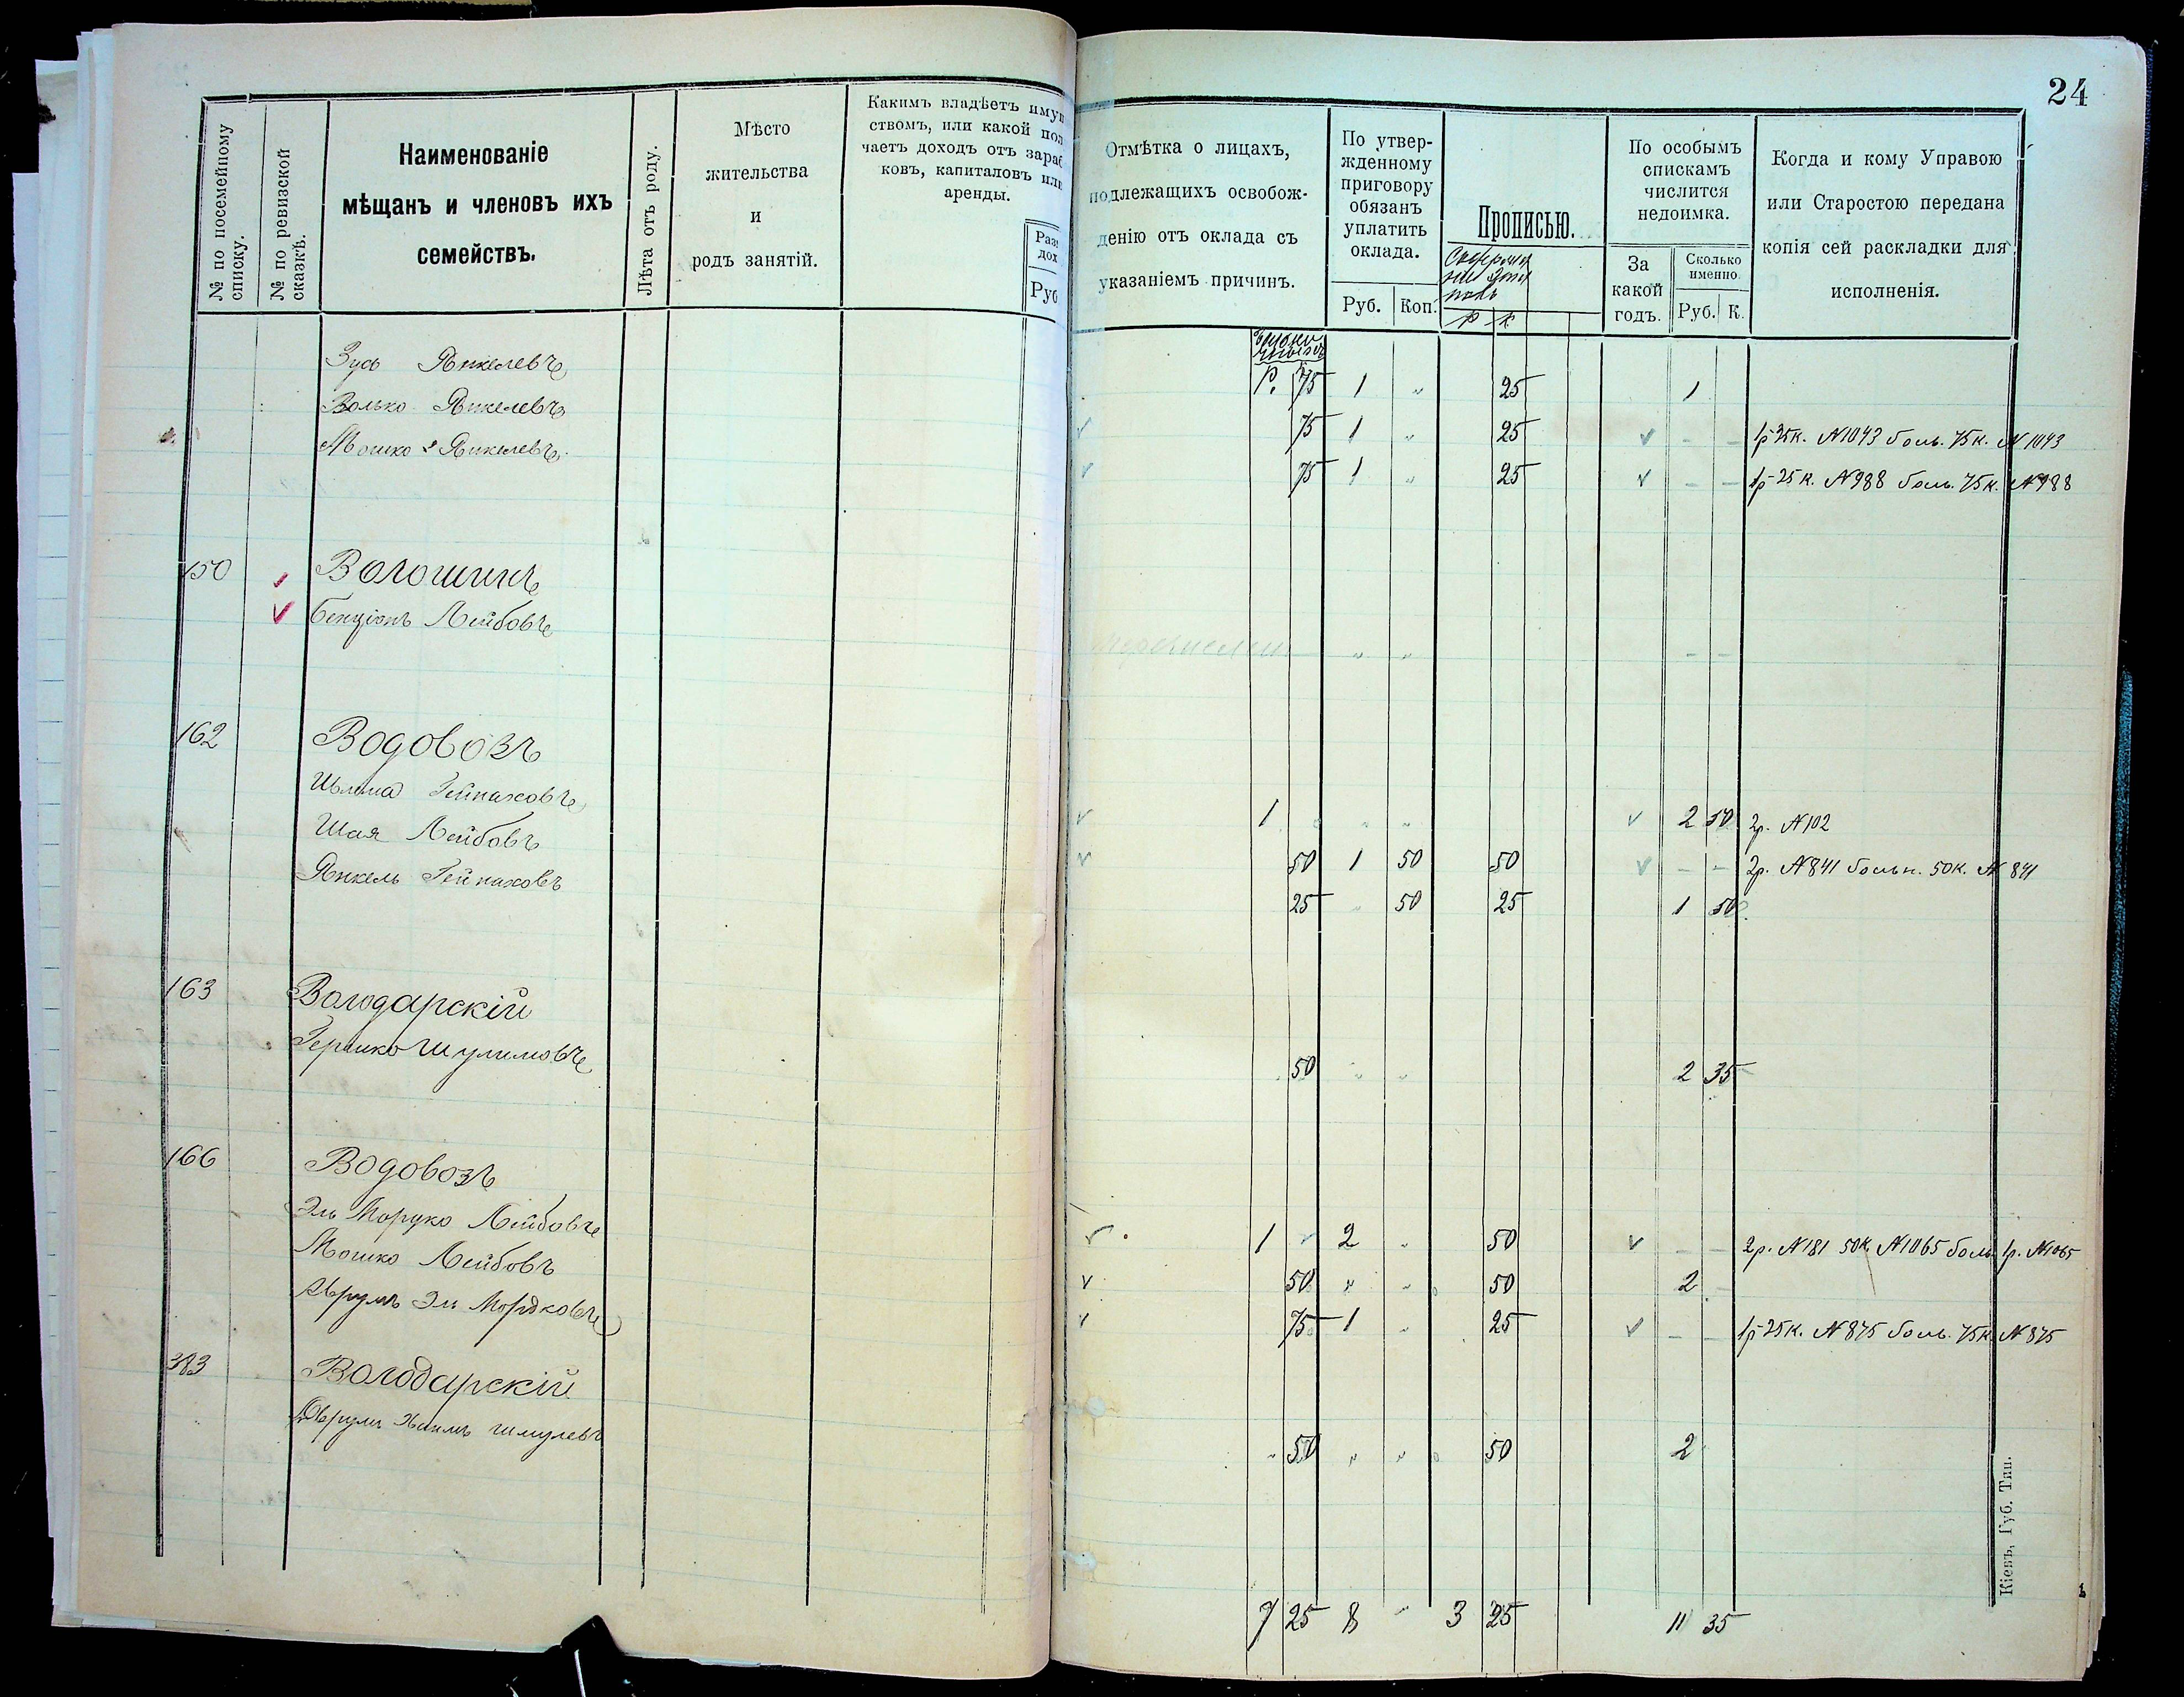 24
№ по посемейному списку.
№ по ревизской сказкѣ.
Наименованіе
мѣщанъ и членовъ ихъ
семействъ.
Лѣта отъ роду.
Мѣсто
жительства
и
родъ занятій.
Какимъ владѣетъ имущ
ствомъ, или какой пол
чаетъ доходъ отъ зараб
ковъ, капиталовъ или
аренды.
Раз
дох
Руб
Отмѣтка о лицахъ,
подлежащихъ освобож-
денію отъ оклада съ
указаніемъ причинъ.
По утвер-
жденному
приговору
обязанъ
уплатить
оклада.
Руб. Коп.
Прописью.
р к
По особымъ
спискамъ
числится
недоимка.
За
какой
годъ.
Сколько
именно.
Руб. К.
Когда и кому Управою
или Старостою передана
копія сей раскладки для
исполненія.
Зусь Янкелевъ
Р. 75 1 „ 25 1
Волько Янкелевъ
75 1 „ 25 - - 1р 25к. №1043 боль. 75к. №1043
Мошко Янкелевъ
75 1 „ 25 - - 1р 25к. №988 боль. 75к. №988
150 Волошинъ
Бенціонъ Лейбовъ
„ „ - -
162 Водовозъ
Шлема Гейнаховъ
1 „ „ „ 2 50 2р. №102
Шая Лейбовъ
50 1 50 50 - - 2р. №841 больн. 50к. №841
Янкель Гейнаховъ
25 „ 50 25 1 50
163 Володарскій
Гершко Шулимовъ
50 „ „ 2 35
166 Водовозъ
Эль Мордко Лейбовъ
1 2 „ 50 - - 2р. №181 50к. №1065 боль. 1р. №1065
Мошко Лейбовъ
50 „ „ 50 2 -
Аврумъ Эль Мордковъ
75 1 „ 25 - - 1р 25к. №875 боль. 75к. №875
383 Володарскій
Аврумъ Хаимъ Шмулевъ
„ 50 „ „ 50 2
7 25 8 „ 3 25 11 35
Кіевъ, Губ. Тип.